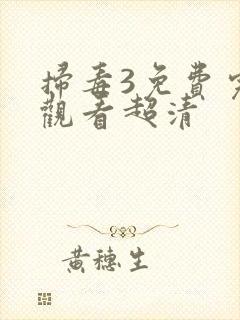 掃毒3免費
觀看超清
黃穗生